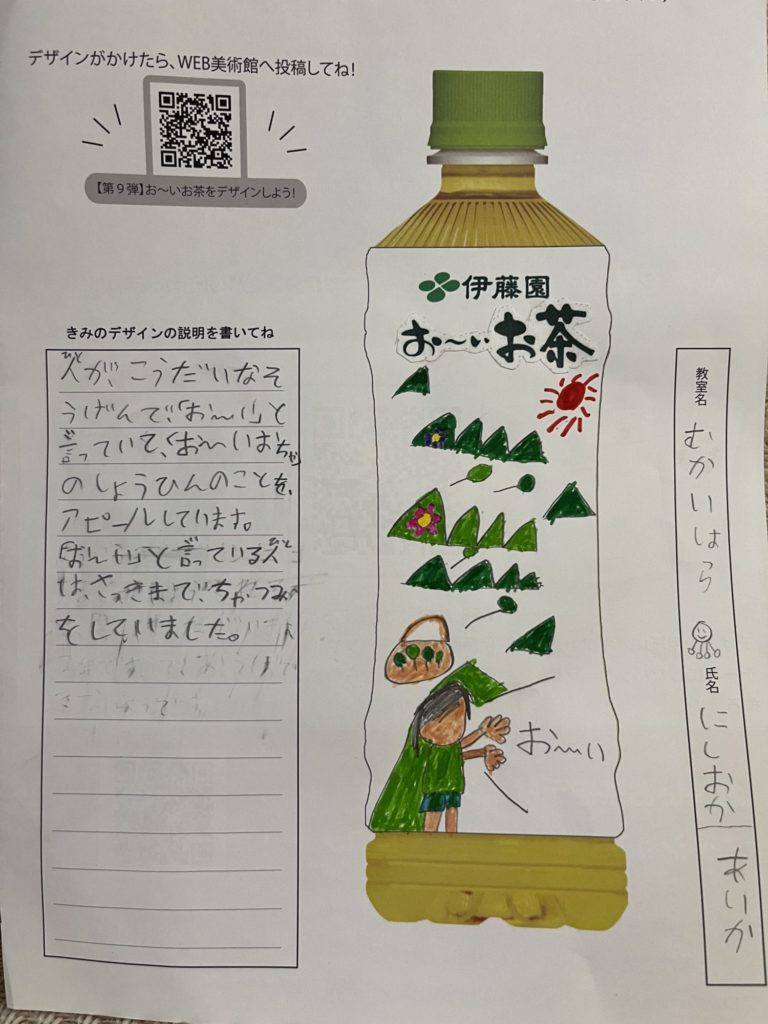 デザインがかけたら、WEB美術館へ投稿してね!
【第9弾】お～いお茶をデザインしよう!
伊藤園
お～いお茶
お～い
きみのデザインの説明を書いてね
人が、こうだいなそ
うげんで、「お～い」と
言っていて、「お～いおちゃ」
のしょうひんのことを、
アピールしています。
「お～い」と言っている人
は、さっきまで、ちゃつみ
をしていました。
教室名
むかいはら
氏名
にしおか
あいか